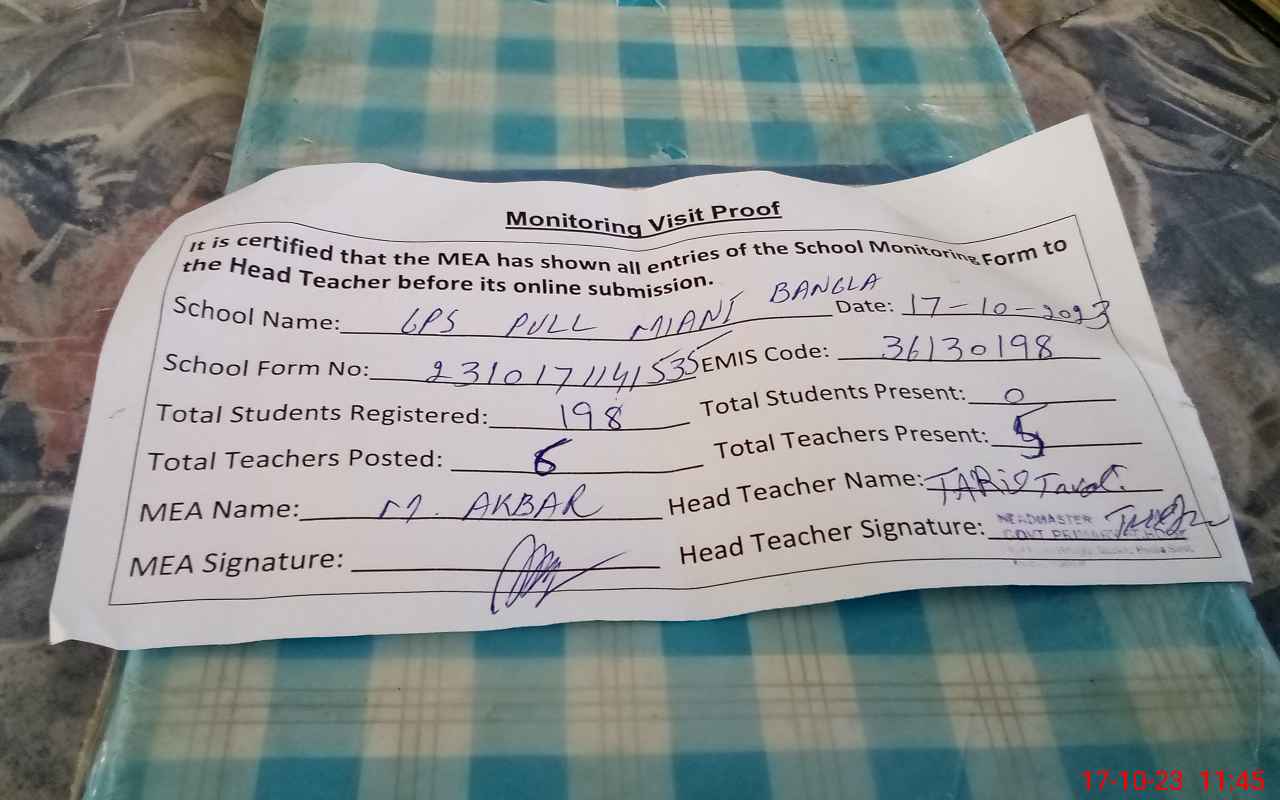 Monitoring Visit Proof
It is certified that the MEA has shown all entries of the School Monitoring Form to
the Head Teacher before its online submission.
School Name: GPS PULL MIANI BANGLA Date: 17-10-2023
School Form No: 2310171141535 EMIS Code: 36130198
Total Students Registered: 198 Total Students Present: 0
Total Teachers Posted: 6 Total Teachers Present: 5
MEA Name: M. AKBAR Head Teacher Name: TARIQ
MEA Signature: Head Teacher Signature:
HEADMASTER
GOVT PRIMARY
17-10-23 11:45